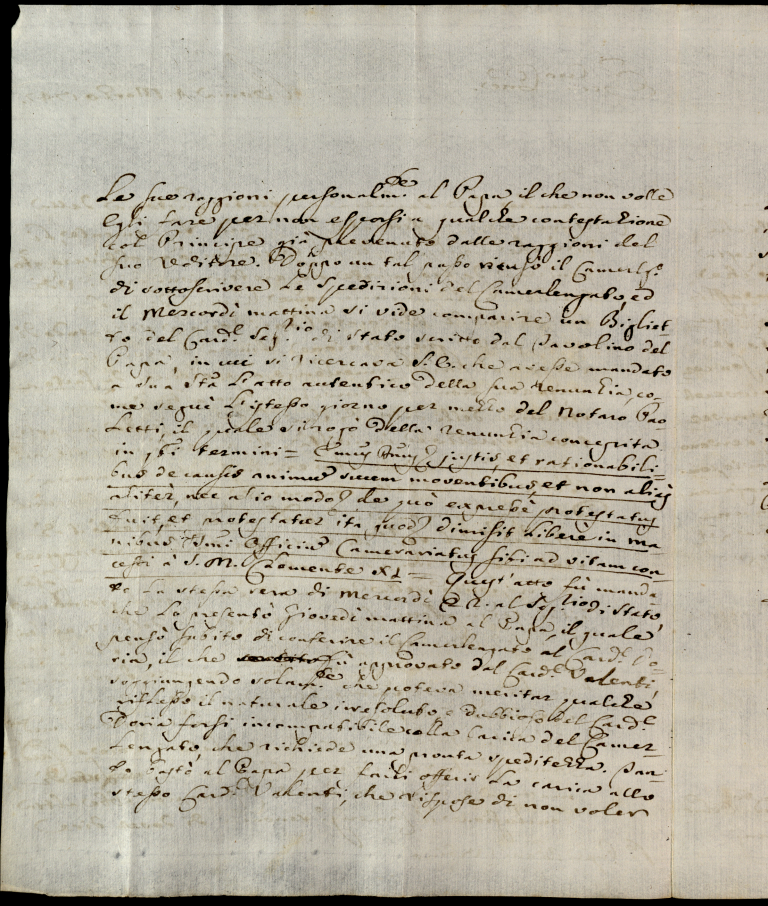 Le sue raggioni personalm.te al Papa, il che non volle
Egli fare per non esporsi a qualche contestazione
col Principe già prevenuto dalle raggioni del
suo Uditore. Doppo un tal passo ricusò il Camerl.o
di sottoscrivere Le Spedizioni del Camerlengato, ed
il Mercordì mattina si vide comparire un Bigliet
to del Card.l Seg.rio di Stato scritto dal Tavolino del
Papa, in cui si ricercava S. E. che avesse mandato
a Sua S.tà L'atto autentico della sua renunzia, co-
me seguì L'istesso giorno per mezzo del Notaro Pao
Letti, il quale si rogò della renuntia concepita
in q.ti termini = Emus justis, et rationabili
bus de causis animum suum moventibus, et non alias
aliter, nec alio modo de quo expresse protestatus
fuit, et protestatur ita, quod dimisit libere in ma
nibus SSmi Officium Camerariatus sibi ad vitam con-
cessi à S. M. Clemente XI = Quest'atto fù manda
to La stessa sera di Mercordì al Seg.rio di Stato,
che Lo presentò Giovedì mattina al Papa, il quale
pensò subito di conferire il Camerlengato al Card.l Do-
ria, il che fù approvato dal Card.l Valenti,
soggiungendo solam.te che poteva meritar qualche
riflesso il naturale irresoluto e dubbioso del Card.l
Doria forsi incompatibile colla carica del Camer-
Lengato, che richiede una pronta speditezza. Tan-
to bastò al Papa per Lui offerir La carica allo
stesso Card.l Valenti, che rispose di non voler